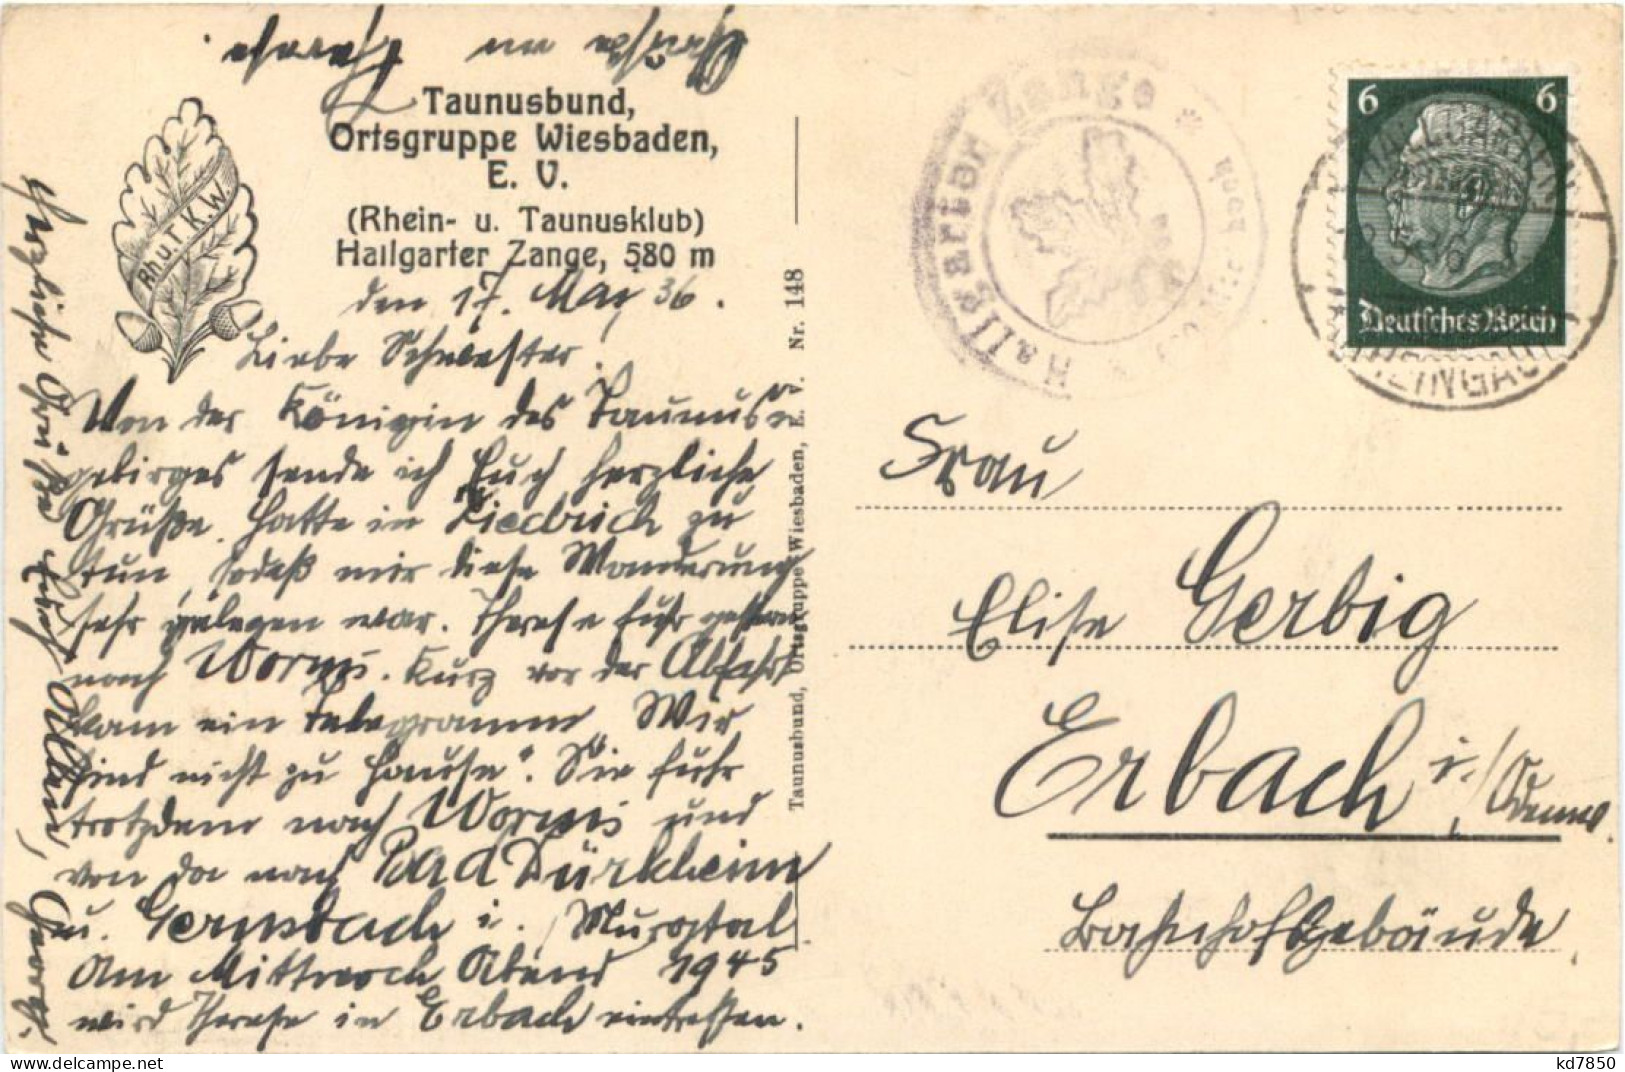 Grüße an Therese.
Taunusbund,
Ortsgruppe Wiesbaden,
E. V.
(Rhein- u. Taunusklub)
Hallgarter Zange, 580 m
Rh. u. T. K. W.
den 17. May 36.
Liebe Schwester.
Von der Königin des Taunus-
gebirges sende ich Euch herzliche
Grüße. Hatte in Kiedrich zu
tun, sodaß mir diese Wanderung
sehr gelegen war. Therese fuhr gestern
nach Worms. Kurz vor der Abfahrt
kam ein Telegramm „Wir
sind nicht zu Hause". Sie fuhr
trotzdem nach Worms und
von da nach Bad Dürkheim
u. Gernsbach i. Murgtal.
Am Mittwoch Abend 1945
wird Therese in Erbach eintreffen.
Herzliche Grüße Euch Allen, Georg.
Taunusbund, Ortsgruppe Wiesbaden, E. V. Nr. 148
Hallgarter Zange *
6 6
Deutsches Reich
HALLGARTEN
RHEINGAU
Frau
Elise Gerbig
Erbach i./Odenw.
Bahnhofsgebäude.
kd7850